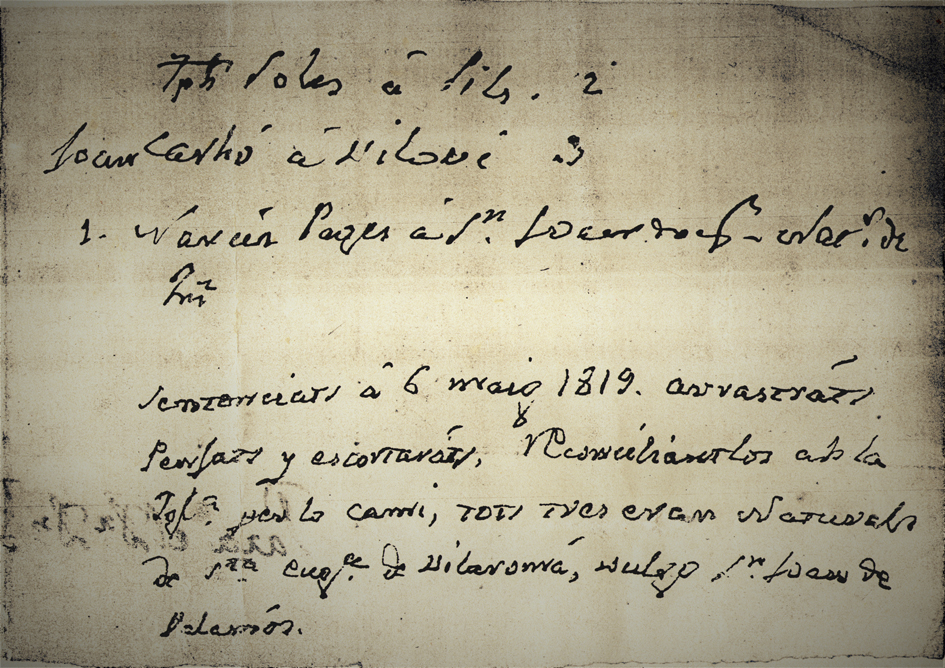 Jph Soles á Sils. 2
Joan Carbó á Vilovi 3
1. Narcis Pages á Sn. Joan de
sentenciats á 6 maig 1819. arrastráts
Penjats y escortarats, Reconciliantlos ab la
Igla. per lo cami, tots tres eran Naturals
de Sta. Euga. de Vilaromá, vulgo Sn. Joan de
Palamós.